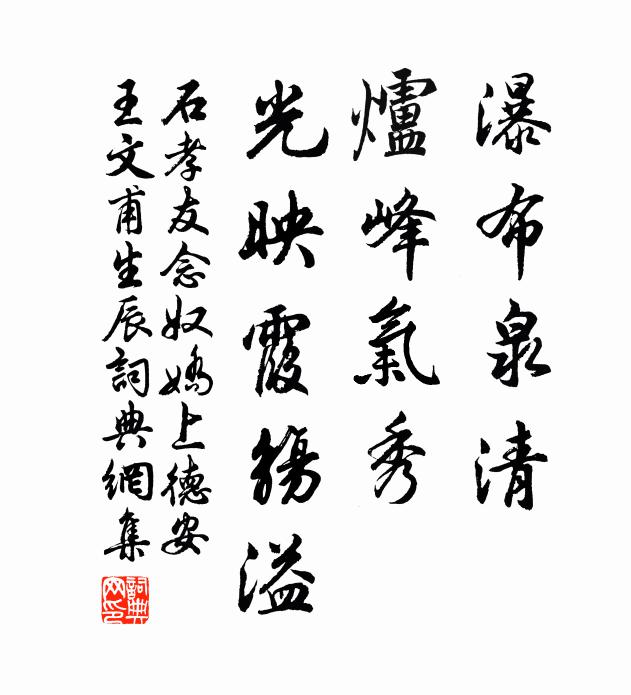 瀑布泉清
爐峰氣秀
光映霞觴溢
石孝友念奴嬌上德安
王文甫生辰詞典網集
詞典网印